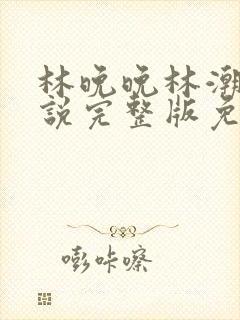 林晚晚林潮
説完整版免
嘭咔嚓